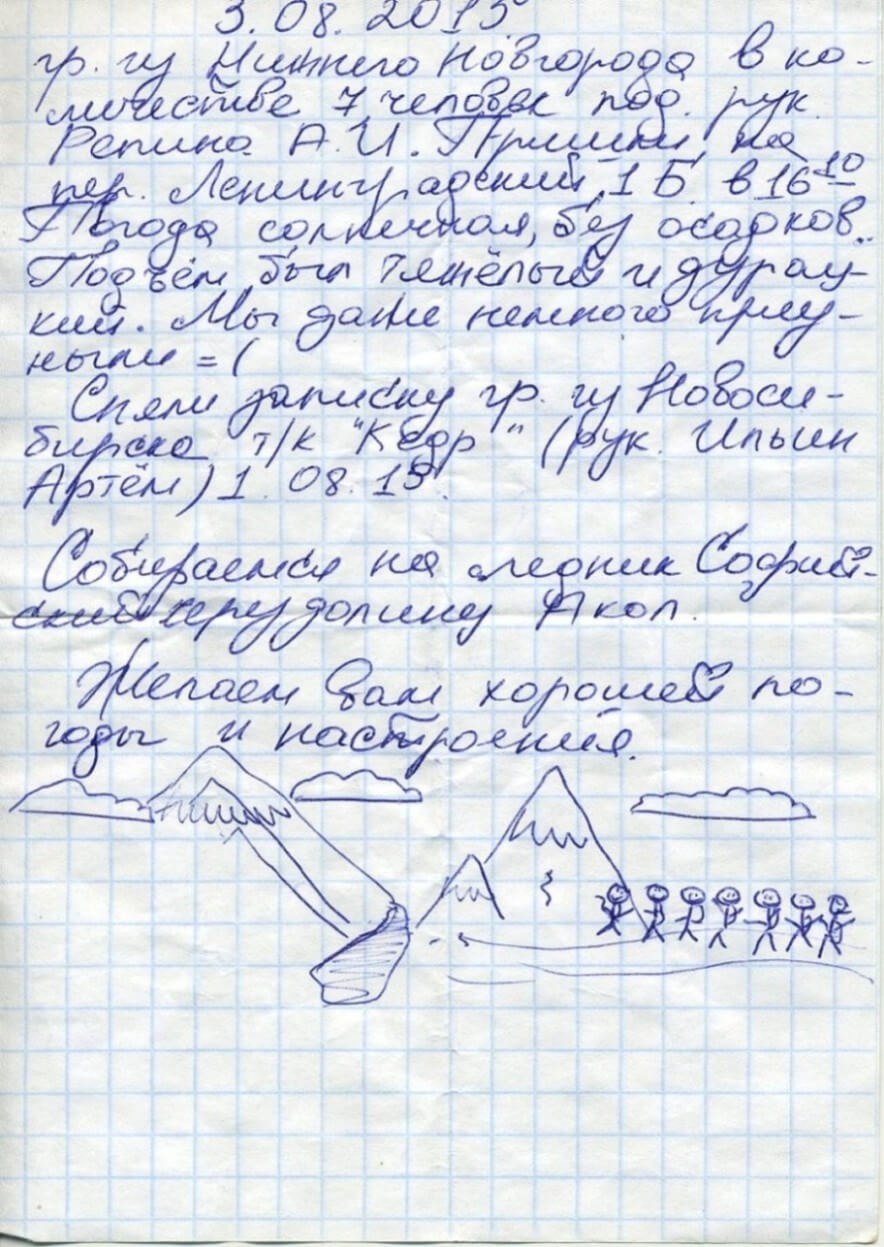 3.08.2015
гр. из Нижнего Новгорода в ко-
личестве 7 человек под. рук.
Репина А.И. Пришли на
пер. Ленинградский 1 Б в 16 10
Погода солнечная, без осадков.
Подъём был тяжёлый и дурац-
кий. Мы даже немного приу-
ныли =(
Сняли записку гр. из Новоси-
бирска т/к "Кедр" (рук. Ильин
Артём) 1.08.15.
Собираемся на ледник Софий-
ский через долину Акол.
Желаем Вам хорошей по-
годы и настроения.